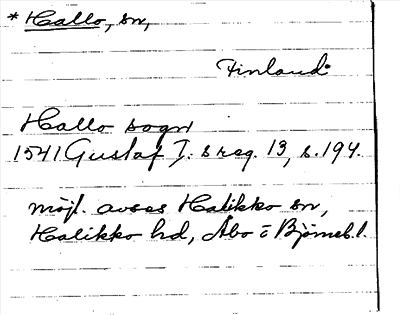 * Hallo, sn,
Finland
Hallo sogn
1541 Gustaf I:s reg. 13, s. 194.
möjl. avses Halikko sn,
Halikko hd, Åbo o Björneb. l.